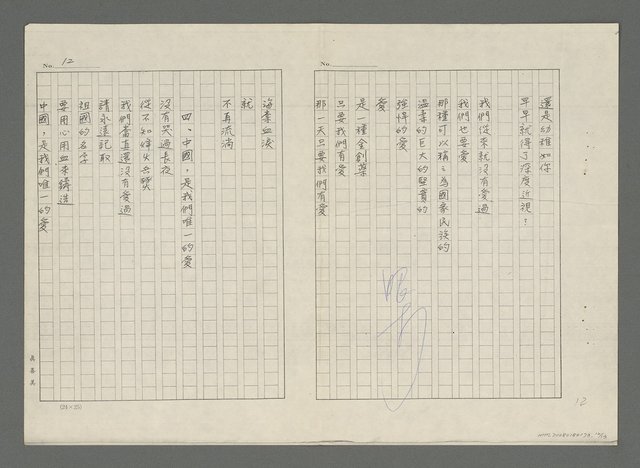 還是幼稚如你
早早就得了深度近視？
我們從來就沒有愛過
我們也要愛
那種可以稱之為國家民族的
溫柔的巨大的堅實的
強悍的愛
愛
是一種金創藥
只要我們有愛
那一天只要我們有愛
12
No. 12
海棠血淚
就
不再流淌
四、中國，是我們唯一的愛
沒有哭過長夜
從不知烽火兵燹
我們簡直還沒有愛過
請永遠記取
祖國的名字
要用心用血來鑄造
中國，是我們唯一的愛
真善美
(24×25)
No.